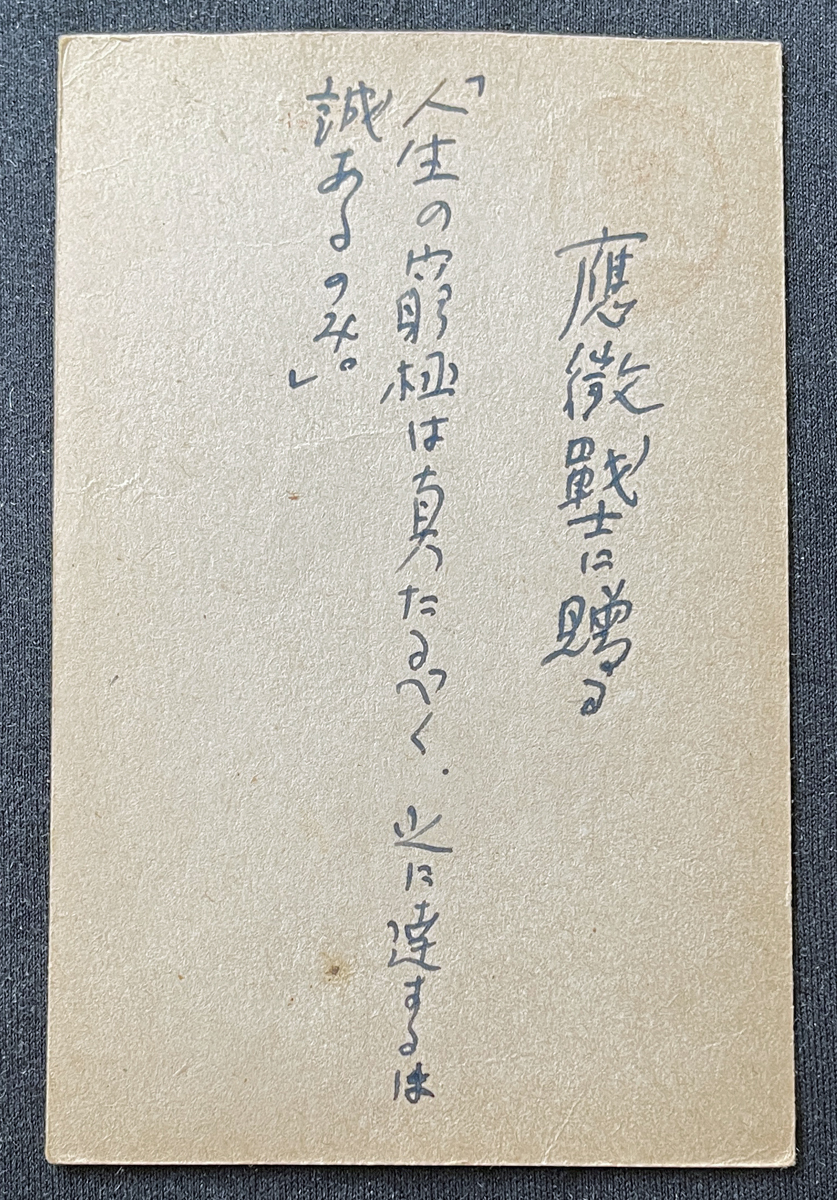 應徴戰士に贈る
「人生の窮極は真たるべく．之に達するは
誠あるのみ。」